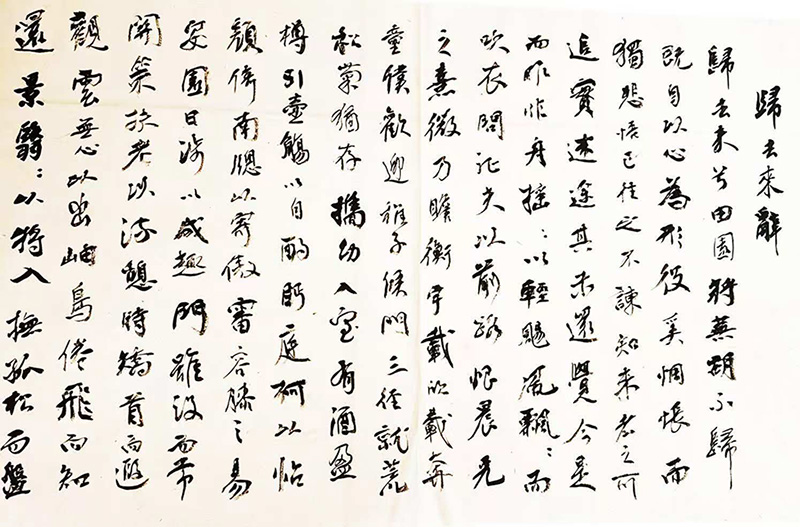 歸去來辭
歸去來兮田園將蕪胡不歸
既自以心為形役奚惆悵而
獨悲悟已往之不諫知來者之可
追實迷途其未遠覺今是
而昨非舟搖〻以輕颺風飄〻而
吹衣問征夫以前路恨晨光
之熹微乃瞻衡宇載欣載奔
童僕歡迎稚子候門三徑就荒
松菊猶存攜幼入室有酒盈
樽引壺觴以自酌眄庭柯以怡
顏倚南牕以寄傲審容膝之易
安園日涉以成趣門雖設而常
關策扶老以流憩時矯首而遐
觀雲無心以出岫鳥倦飛而知
還景翳〻以將入撫孤松而盤